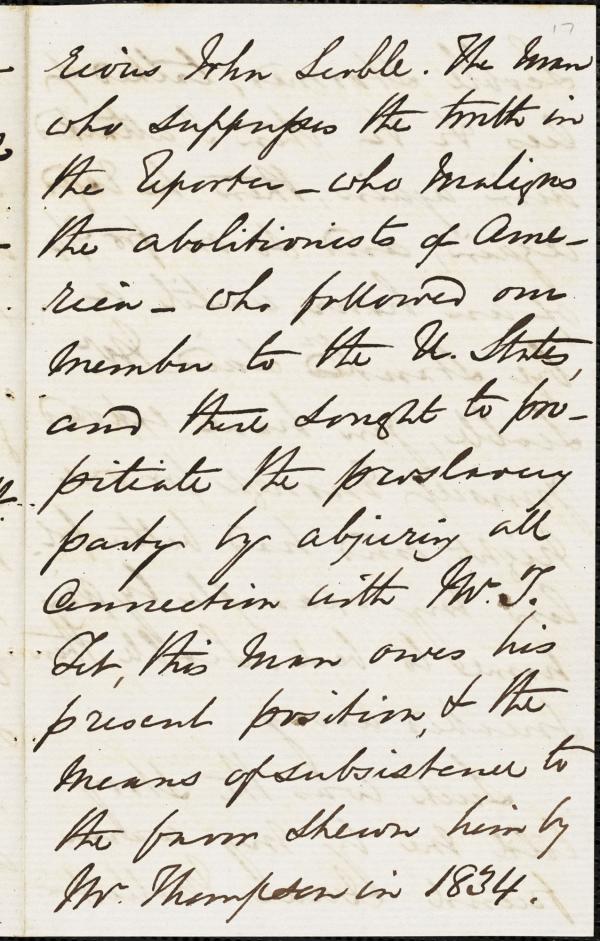 17
rious John Scoble. The man
who suppresses the truth in
the Reporter – who maligns
the abolitionists of Ame-
rica – who followed our
member to the U. States,
and there sought to pro-
pitiate the proslavery
party by abjuring all
connection with Mr. T.
Yet, this man owes his
present position, & the
means of subsistence to
the favor shewn him by
Mr. Thompson in 1834.